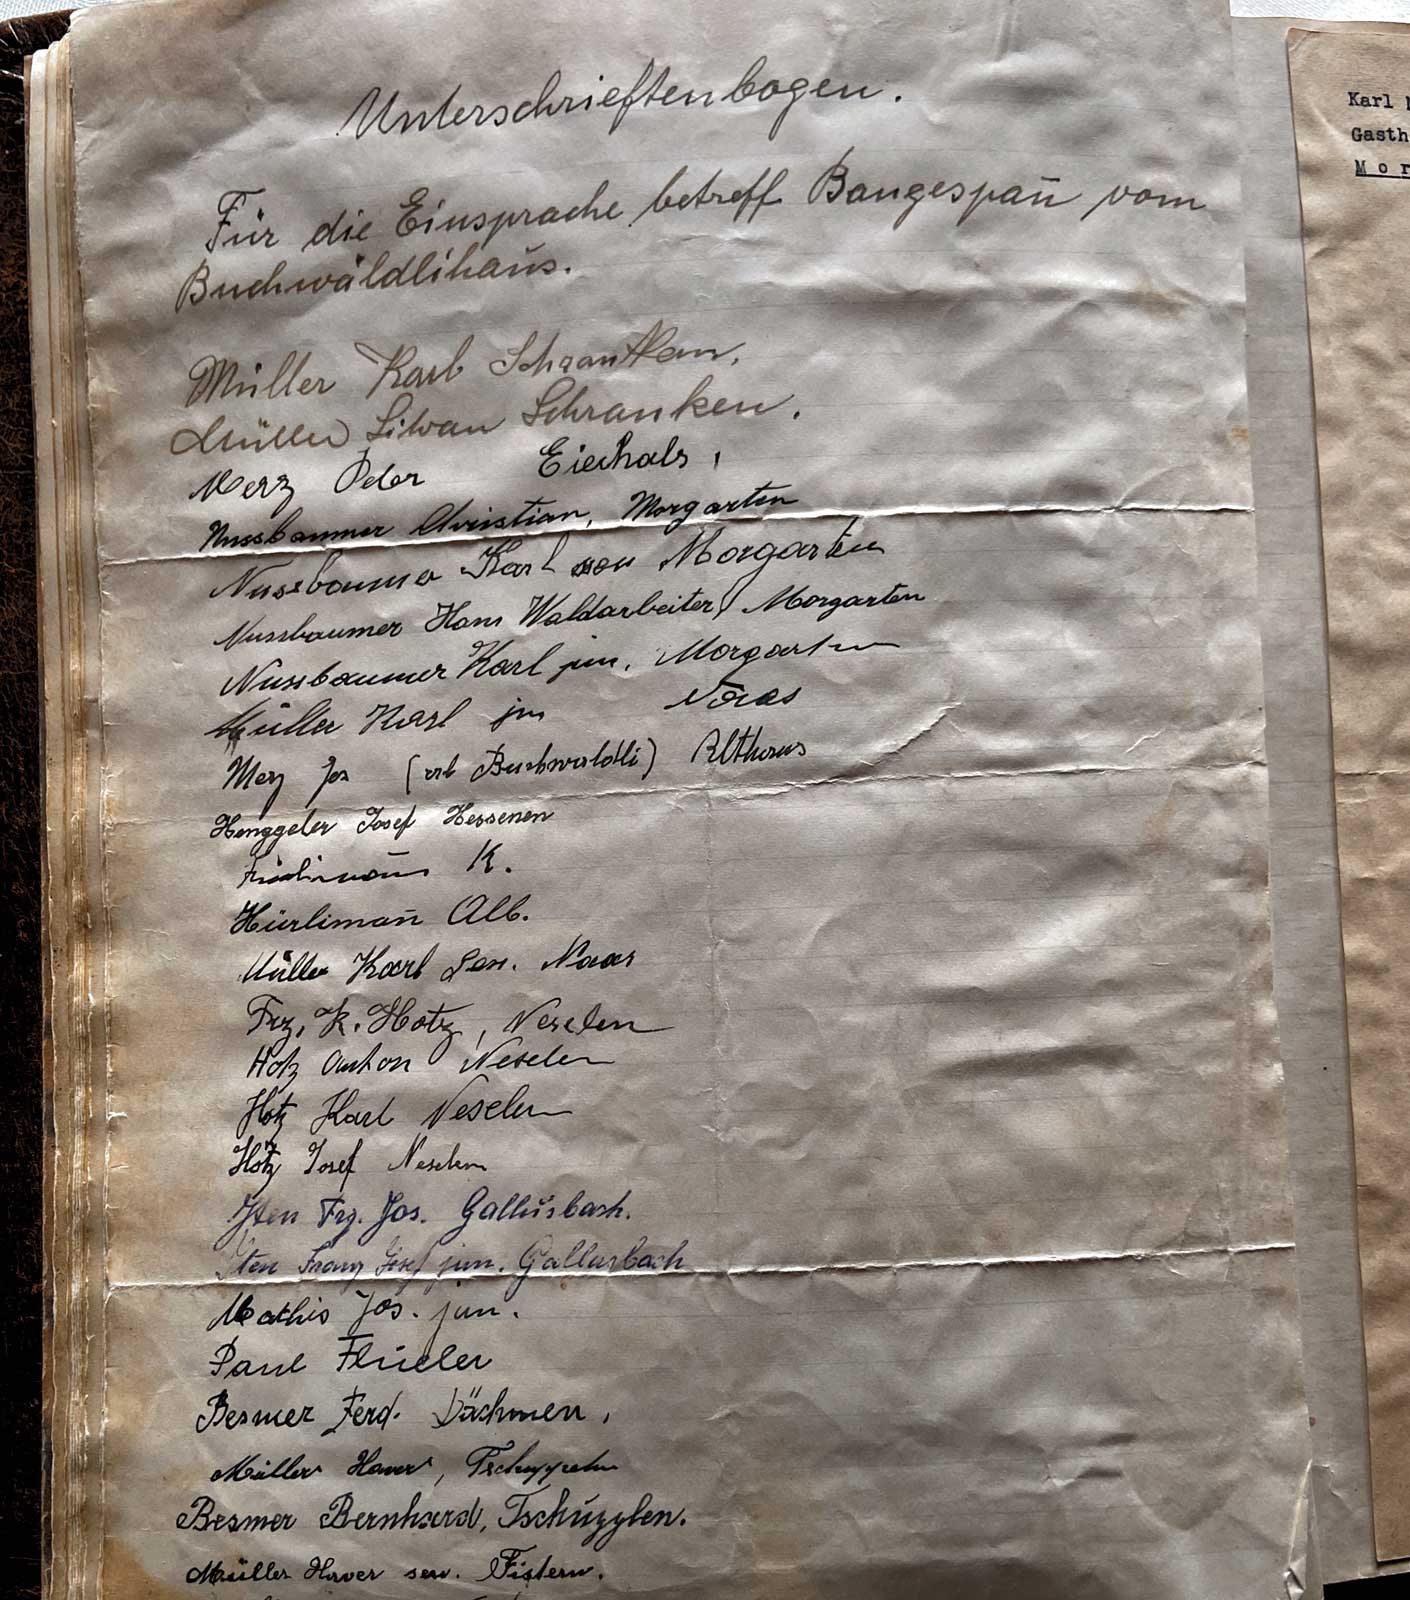 Unterschrieftenbogen.
Für die Einsprache betreff Baugespan̄ vom
Buchwäldlihaus.
Müller Karl Schranken,
Müller Silvan Schranken.
Merz Peter Eiechals,
Nussbaumer Christian, Morgarten
Nussbaumer Karl sen Morgarten
Nussbaumer Hans Waldarbeiter, Morgarten
Nussbaumer Karl jun. Morgarten
Müller Karl jn Naas
Merz Jos (alt Buchwaldli) Althaus
Henggeler Josef Hessenen
K.
Hürliman̄ Alb.
Müller Karl Sen. Naas
Frz. K. Hotz, Neselen
Hotz Anton Neselen
Hotz Karl Neselen
Hotz Josef Neselen
Iten Frz. Jos. Gallusbach.
Iten Franz Josef jun. Gallusbach
Mathis Jos. jun.
Paul Flüeler
Besmer Ferd. Dächmen,
Müller Xaver, Tschupplen
Besmer Bernhard, Tschupplen.
Müller Xaver sen. Fistern.
Karl
Gasth
Mor